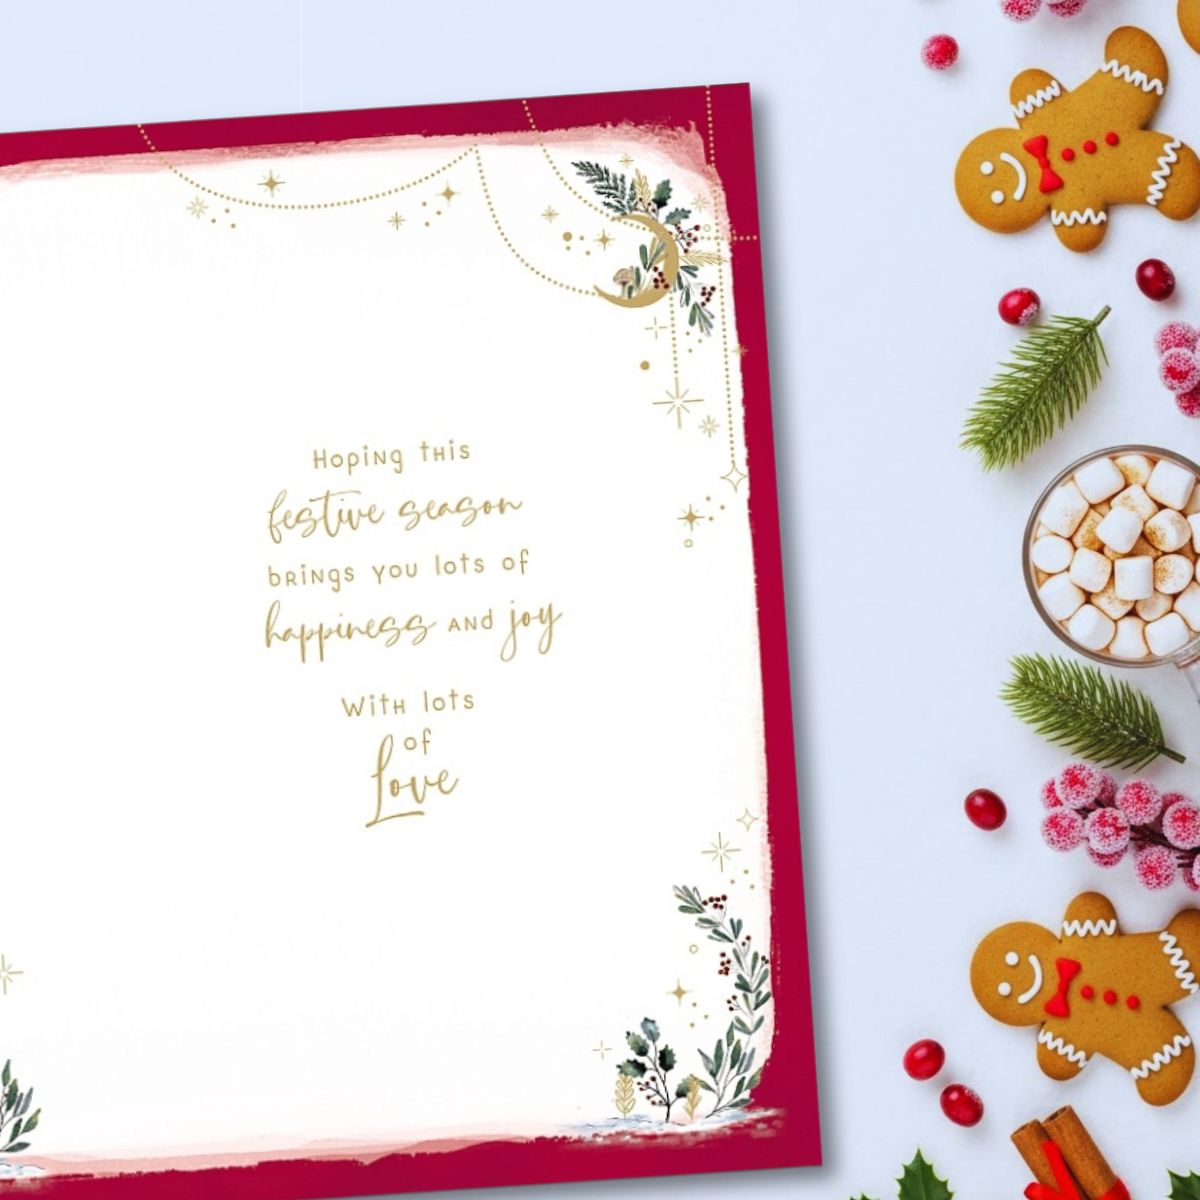 Hoping this
festive season
brings you lots of
happiness and joy
With lots
of
Love